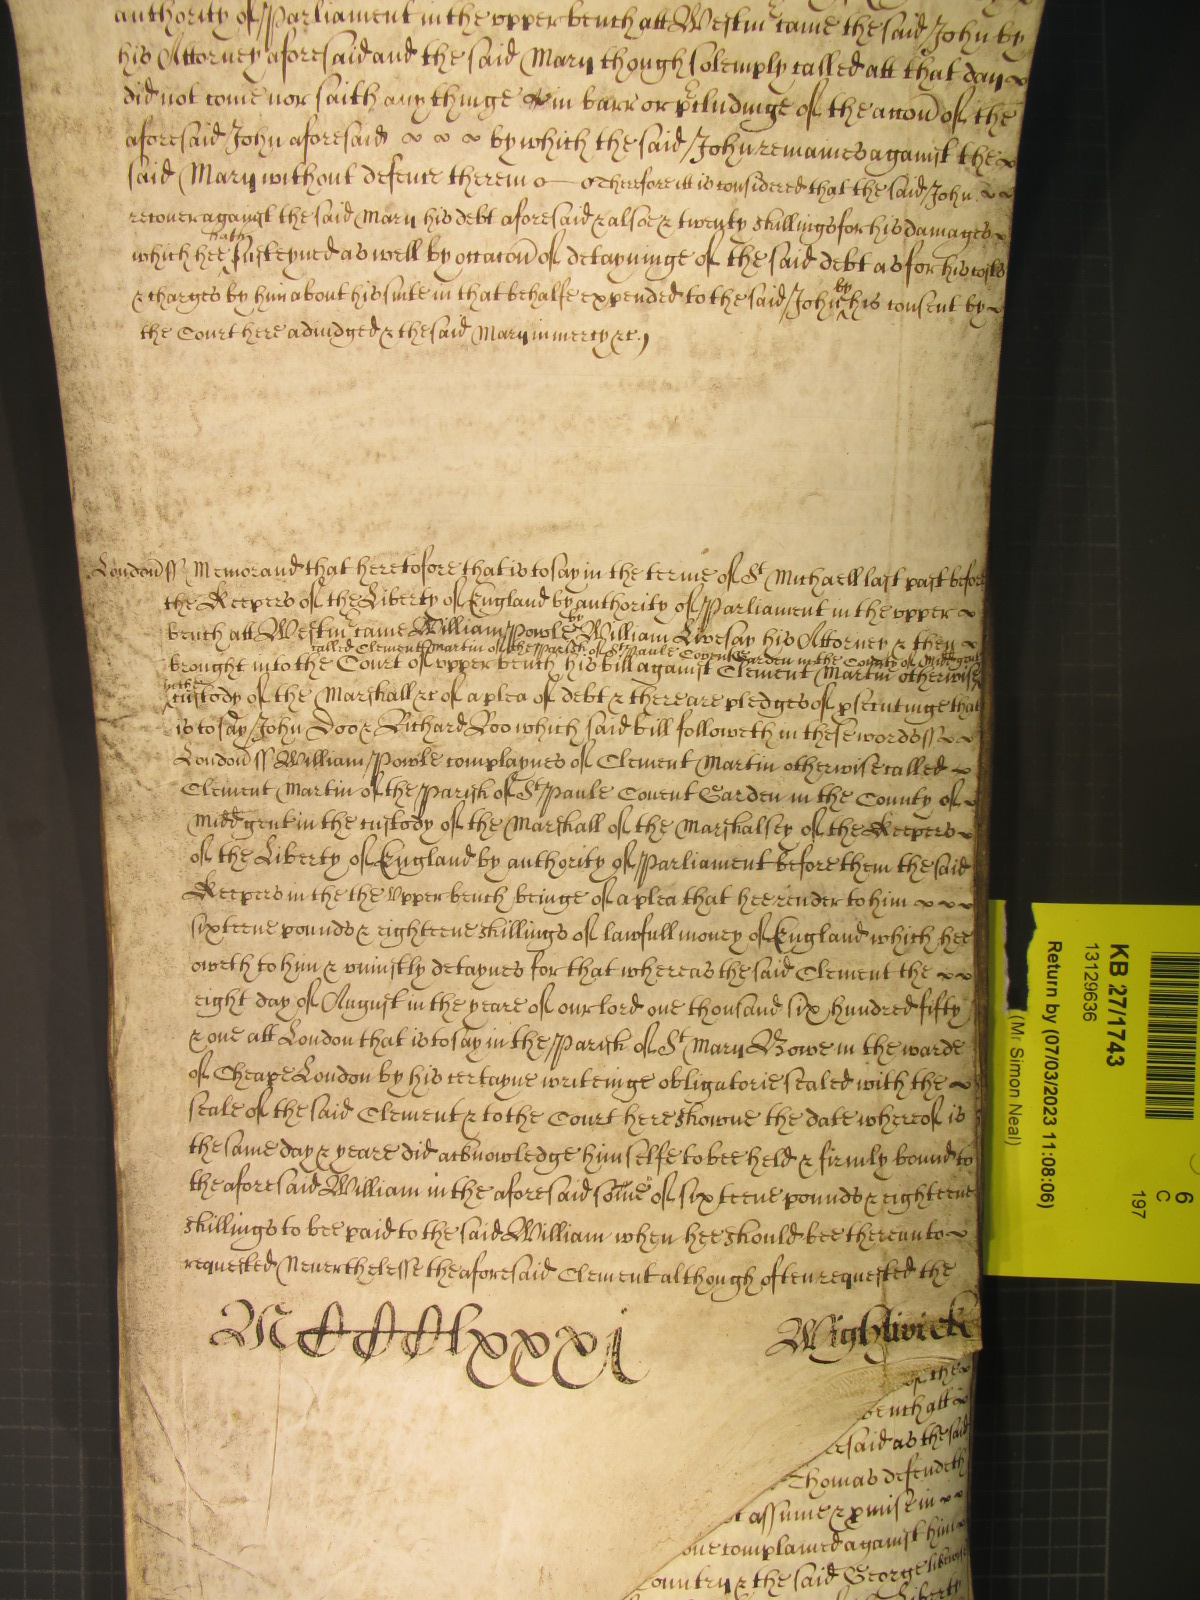 authority of Parliament in the upper bench att Westmr came the said John by
his Attorney aforesaid and the said Mary though solemply called att that day
did not come nor saith any thinge in barr or pcludinge of the accon of the
aforesaid John aforesaid by which the said John remaines against the
said Mary without defence therein Therefore itt is considered that the said John
recover against the said Mary his debt aforesaid & alsoe twenty shillings for his damages
hath
which hee susteyned as well by occacon of detayninge of the said debt as for his costs
by
& charges by him about his suite in that behalfe expended to the said John his consent by
the Court here adiudged & the said Mary in mercy &c.
London ss Memorand that heretofore that is to say in the terme of St Michaell last past before
the Keepers of the Liberty of England by authority of Parliament in the upper
by
bench att Westmr came William Powle William Livesay his Attorney & then
called Clement Martin of the Parish of St Paule Covent Garden in the County of Midd gent
brought into the Court of upper bench his bill against Clement Martin otherwise
in the
custody of the Marshall &c of a plea of debt & there are pledges of psecutinge that
is to say John Doo & Richard Roo which said bill followeth in these words ss
London ss William Powle complaynes of Clement Martin otherwise called
Clement Martin of the Parish of St Paule Covent Garden in the County of
Midd gent in the custody of the Marshall of the Marshalsey of the Keepers
of the Liberty of England by authority of Parliament before them the said
Keepers in the the Upper bench beinge of a plea that hee render to him
sixteene pounds & eighteene shillings of lawfull money of England which hee
oweth to him & uniustly detaynes for that whereas the said Clement the
eight day of August in the yeare of our lord one thousand six hundred fifty
& one att London that is to say in the Parish of St Mary Bowe in the warde
of Cheape London by his certayne writeinge obligatorie sealed with the
seale of the said Clement & to the Court here showne the date whereof is
the same day & yeare did acknowledge himselfe to bee held & firmly bound to
the aforesaid William in the aforesaid some of sixteene pounds & eighteene
shillings to bee paid to the said William when hee should bee thereunto
requested Neverthelesse the aforesaid Clement although often requested the
MCCClxxxi Wightwick
of the
bench att
said as the said
Thomas defendeth
assume & pmise in
complained against him
ountry & the said George likewise
Liberty
KB 27/1743
13129636
Return by (07/03/2023 11:08:06)
(Mr Simon Neal)
6
C
197